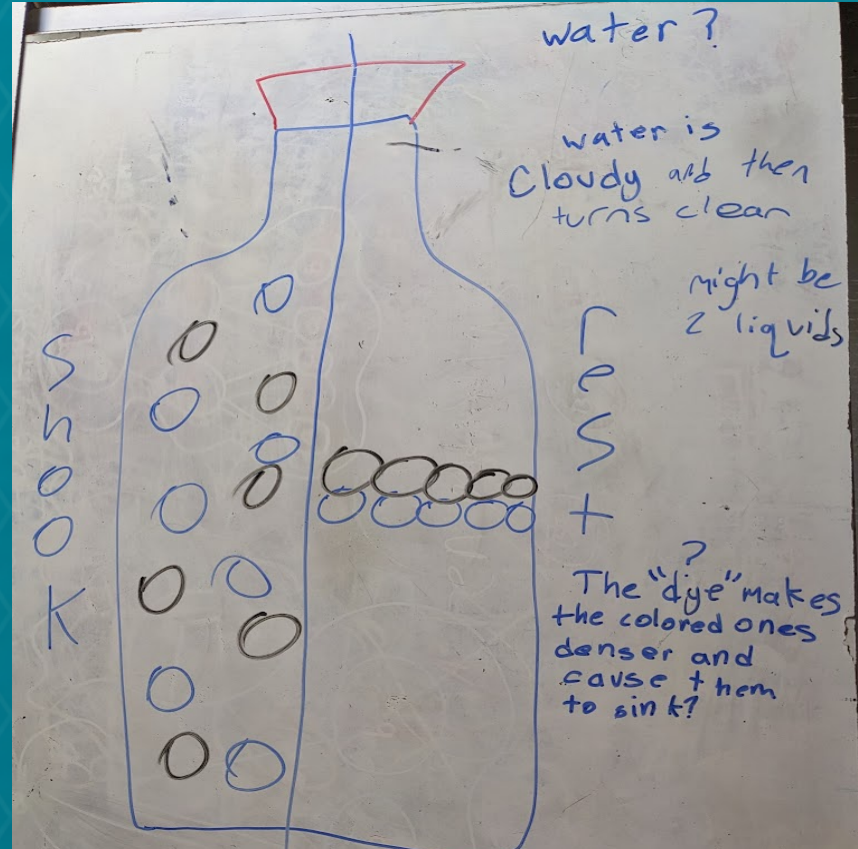 water?
water is
Cloudy and then
turns clear
might be
2 liquids
s
h
o
o
K
r
e
s
t
?
The "dye" makes
the colored ones
denser and
cause them
to sink?